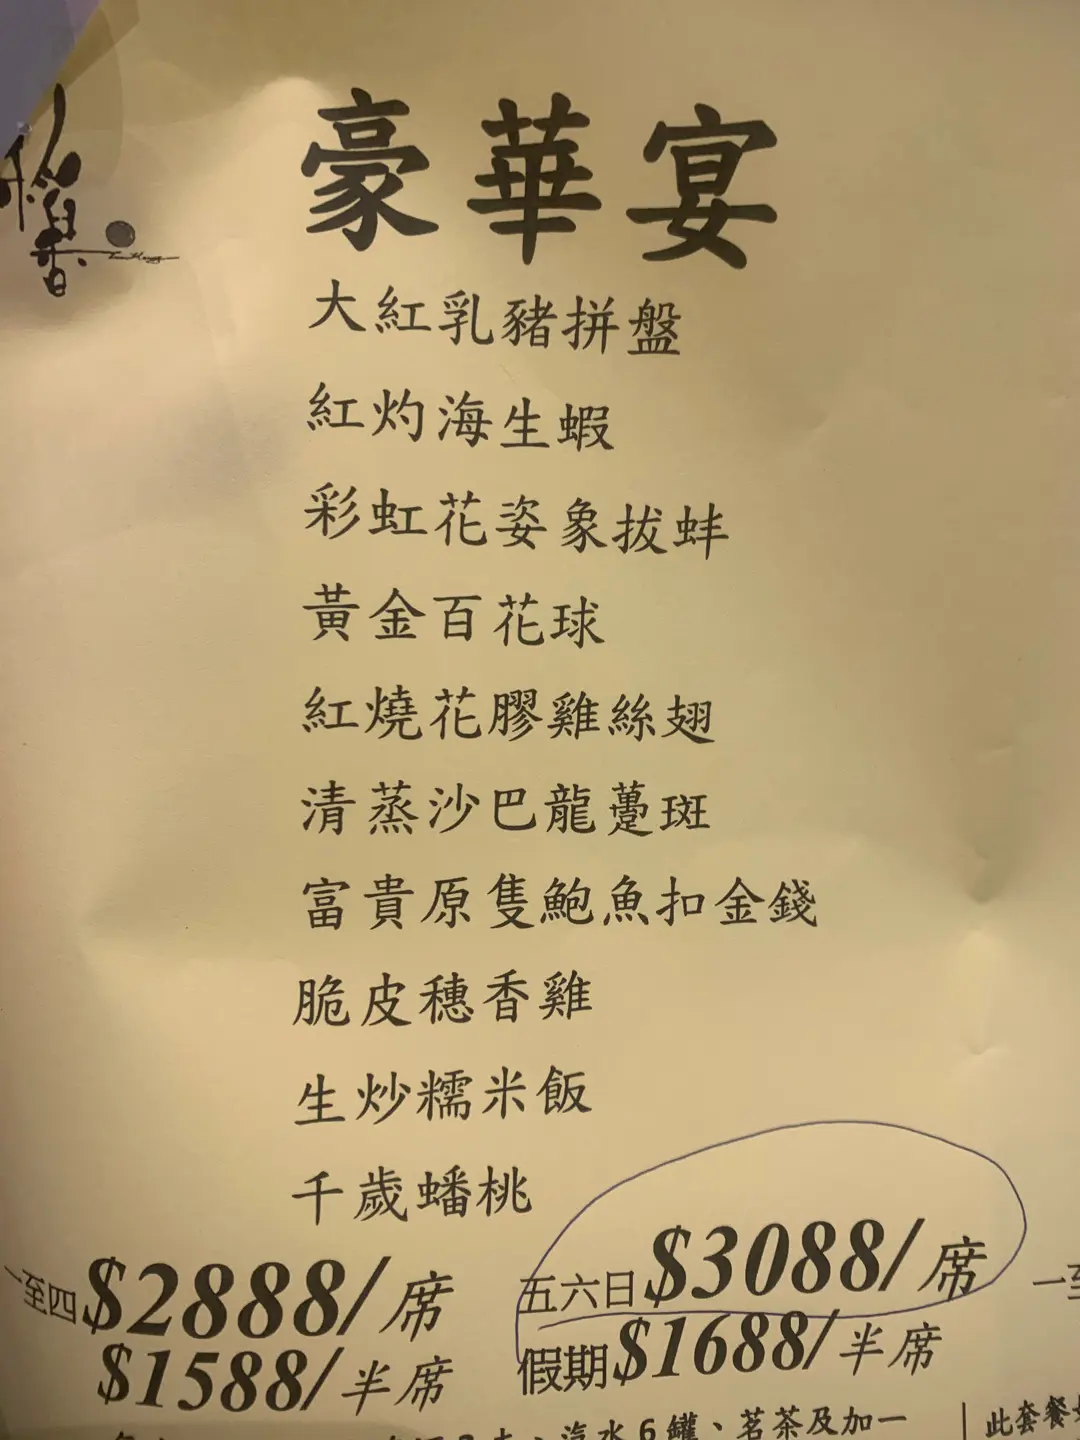 穗香
豪華宴
大紅乳豬拼盤
紅灼海生蝦
彩虹花姿象拔蚌
黃金百花球
紅燒花膠雞絲翅
清蒸沙巴龍躉斑
富貴原隻鮑魚扣金錢
脆皮穗香雞
生炒糯米飯
千歲蟠桃
一至四$2888/席
$1588/半席
五六日$3088/席
假期$1688/半席
一至
汽水6罐、茗茶及加一
此套餐